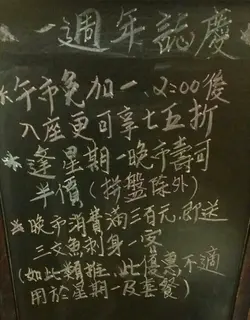 一週年誌慶
*午市免加一、2:00後
入座更可享七五折
*逢星期一晚市壽司
半價(拼盤除外)
*晚市消費滿三百元,即送
三文魚刺身一客
(如此類推,此優惠不適
用於星期一及套餐)